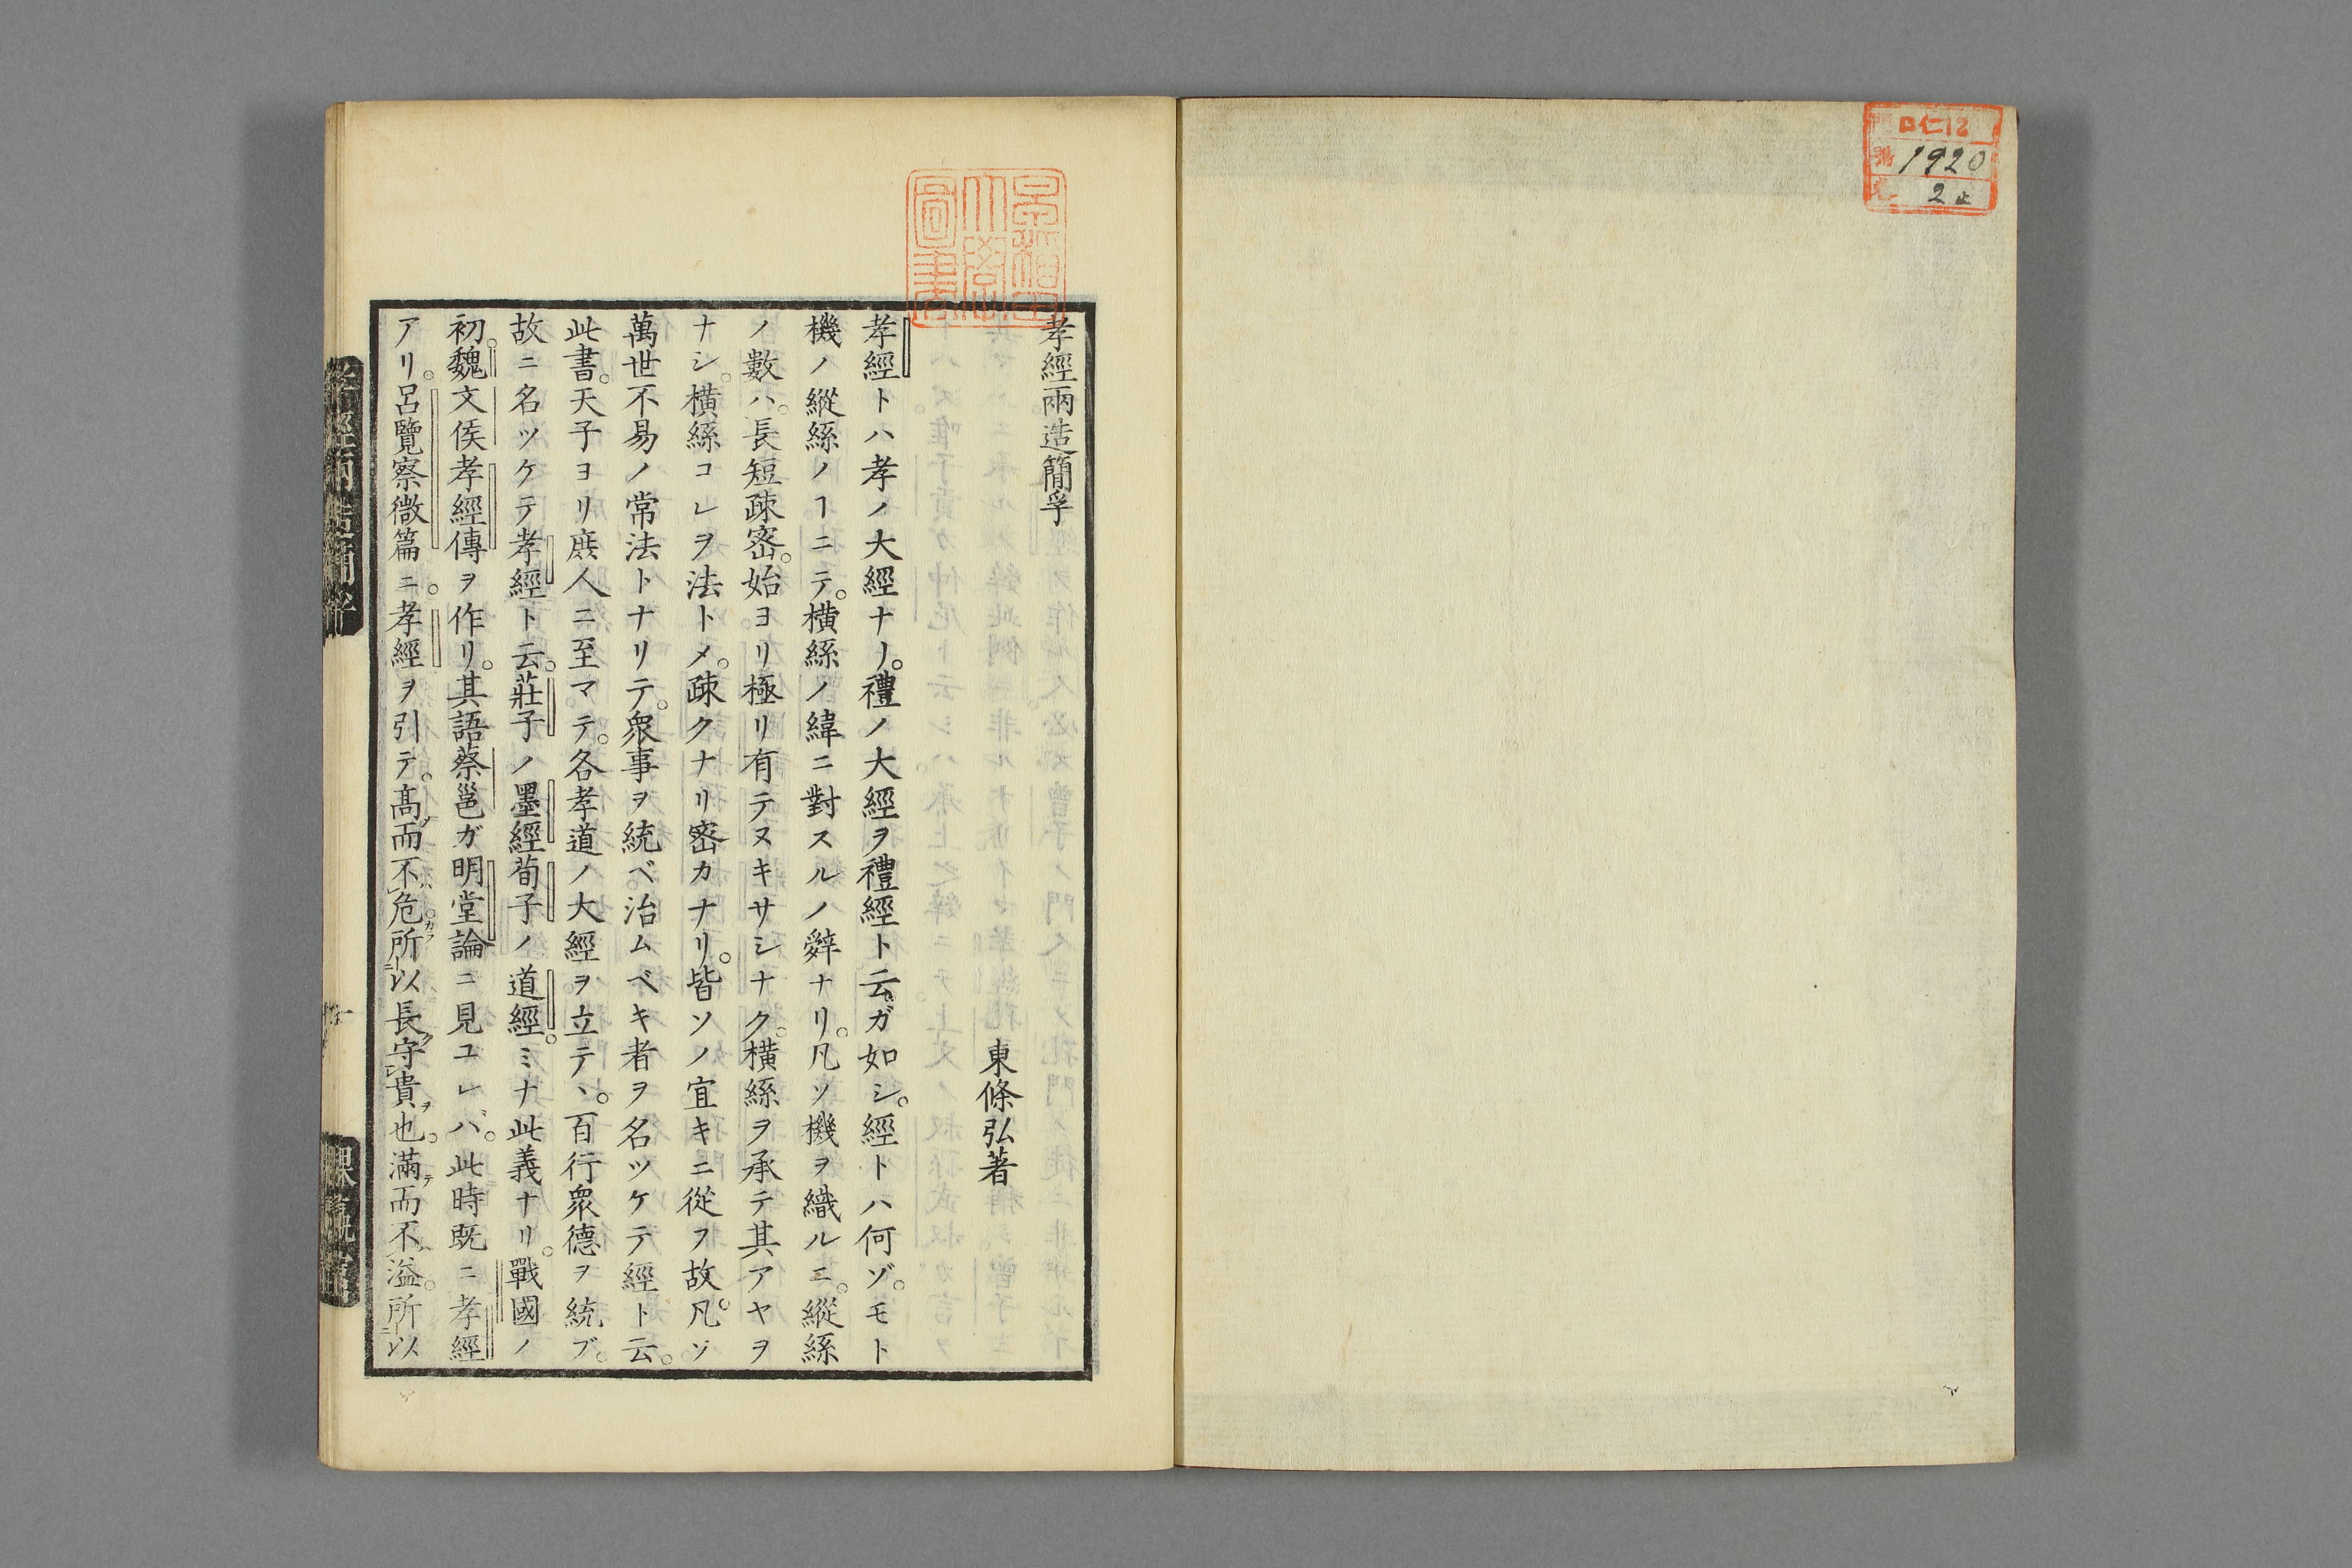 ロ仁12
號 1920
2止
孝經兩造簡孚
東條弘著
孝經トハ孝ノ大經ナリ。禮ノ大經ヲ禮經ト云ガ如シ。經トハ何ゾ。モト
機ノ縱絲ノヿニテ。橫絲ノ緯ニ對スルノ辭ナリ。凡ソ機ヲ織ルニ。縱絲
ノ數ハ。長短疎密。始ヨリ極リ有テヌキサシナク。橫絲ヲ承テ其アヤヲ
ナシ。橫絲コレヲ法トメ。疎クナリ密カナリ。皆ソノ宜キニ從フ故。凡ソ
萬世不易ノ常法トナリテ。衆事ヲ統ベ。治ムベキ者ヲ名ツケテ經ト云。
此書。天子ヨリ庶人ニ至マテ。各孝道ノ大經ヲ立テヽ。百行衆德ヲ統ブ。
故ニ名ツケテ孝經ト云。莊子ノ墨經荀子ノ道經。ミナ此義ナリ。戰國ノ
初。魏文侯孝經傳ヲ作リ。其語蔡邕ガ明堂論ニ見ユレバ。此時既ニ孝經
アリ。呂覽察微篇ニ。孝經ヲ引テ。高而不危。所以長守貴也。滿而不溢。所以
孝經兩造簡孚
一